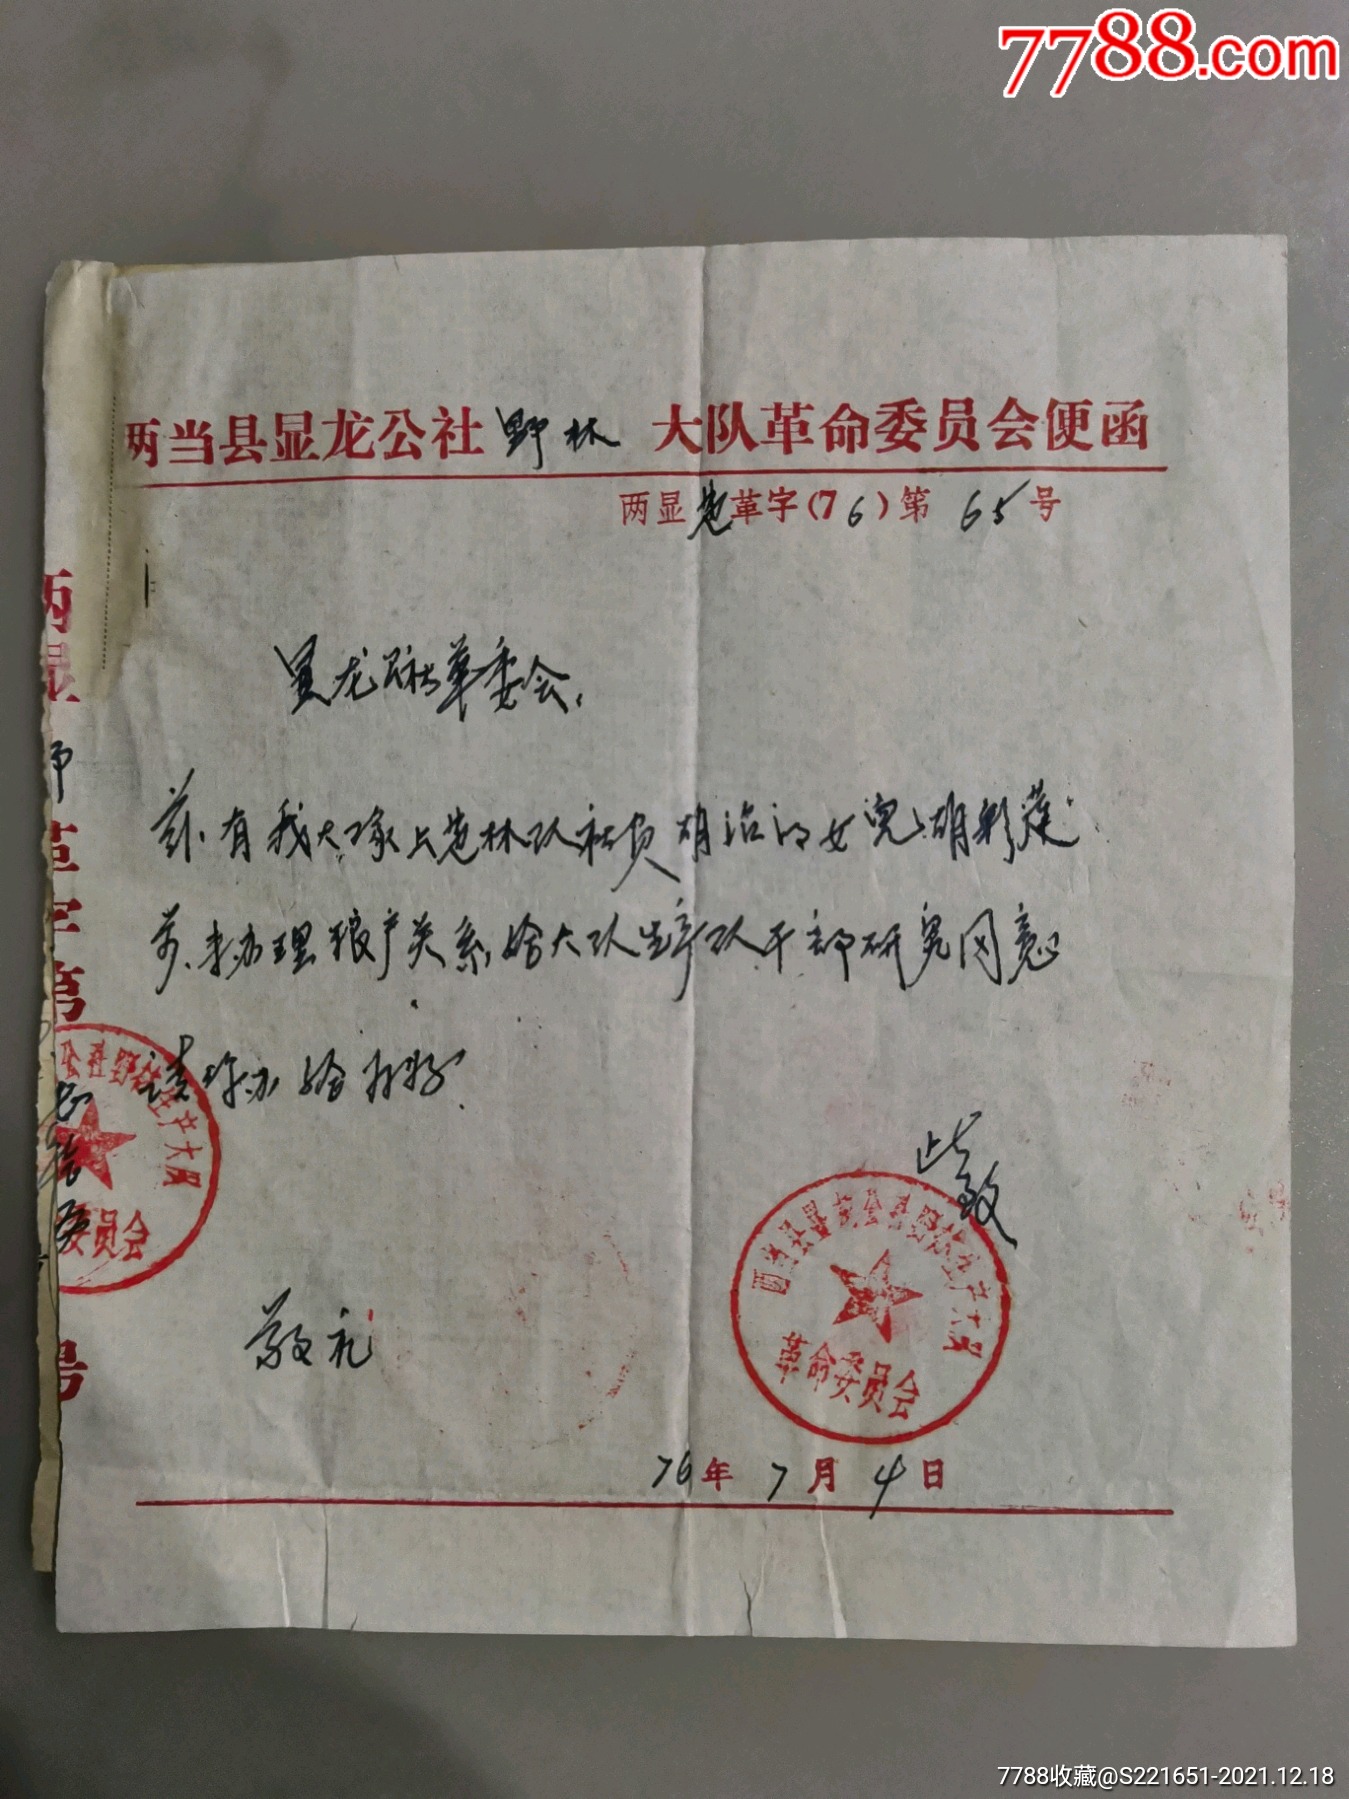 7788.com
两当县显龙公社野林大队革命委员会便函
两显 革字(76)第65号
显龙公社革委会.
兹有我大队上 林队社员胡治的女儿胡彩莲
前来办理粮户关系,给大队生产队干部研究同意
请你办给
此致
敬礼
两当县显龙公社野林生产大队
革命委员会
76年7月4日
两显
革字第
号
公社野林生产大队
委员会
7788收藏@S221651-2021.12.18